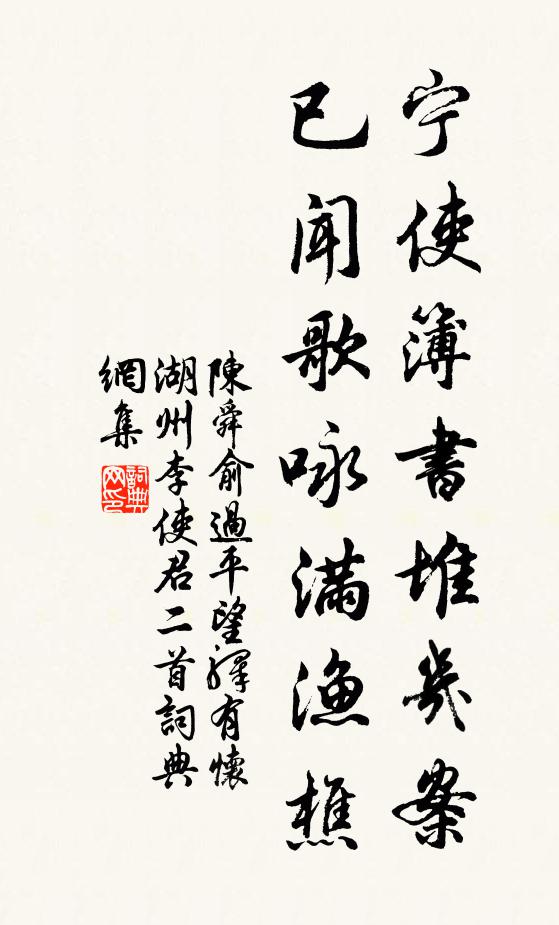 宁使簿書堆幾案
已聞歌咏滿漁樵
陳舜俞過平望驛有懷
湖州李使君二首詞典
網集
詞典網印